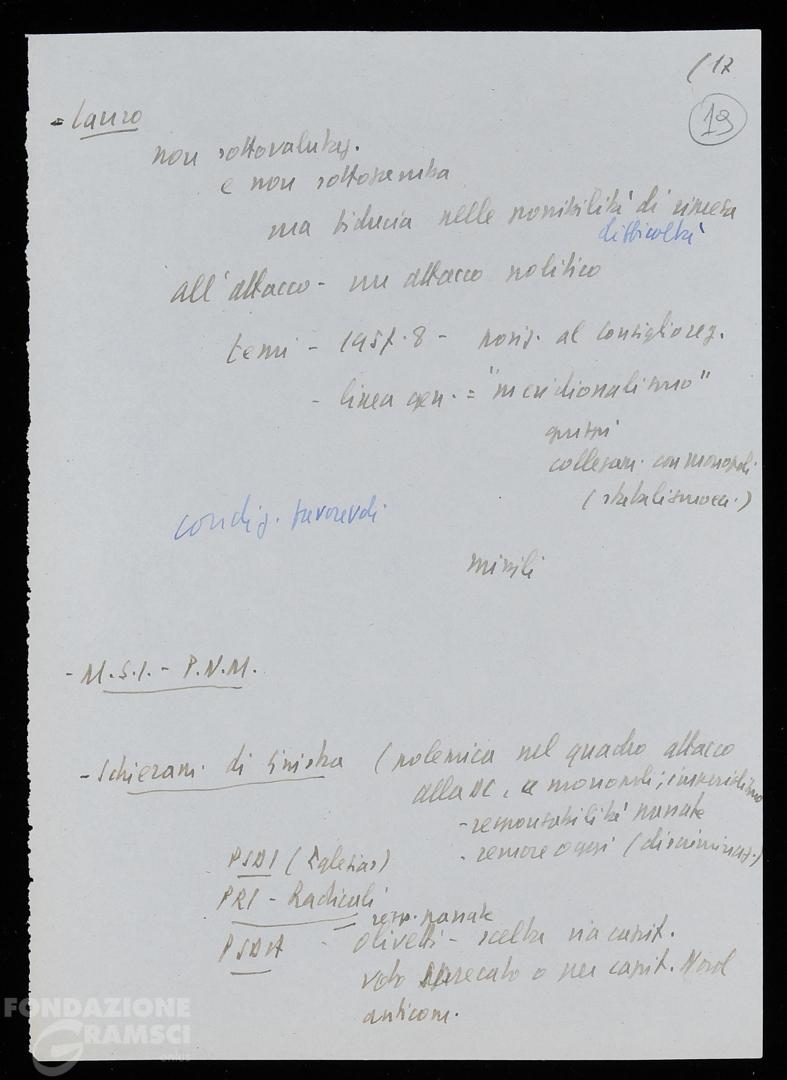 (17
19
- Lauro
non sottovalutaz.
e non sottogamba
ma fiducia nelle possibilità di ripresa
difficoltà
all'attacco - un attacco politico
temi - 1957-8 - posiz. al consiglio reg.
- linea gen. = "meridionalismo"
collegam. con monopoli
condiz. favorevoli
missili
- M.S.I. - P.N.M.
- Schieram. di sinistra (polemica nel quadro attacco
alla DC, a monopoli; imperialismo
- responsabilità passate
- remore oggi (discriminaz.)
PSDI (Iglesias)
PRI - Radicali
resp. passate
PSDA - Olivetti - scelta via capit.
voto sprecato o per capit. Nord
anticom.
FONDAZIONE
GRAMSCI
onlus